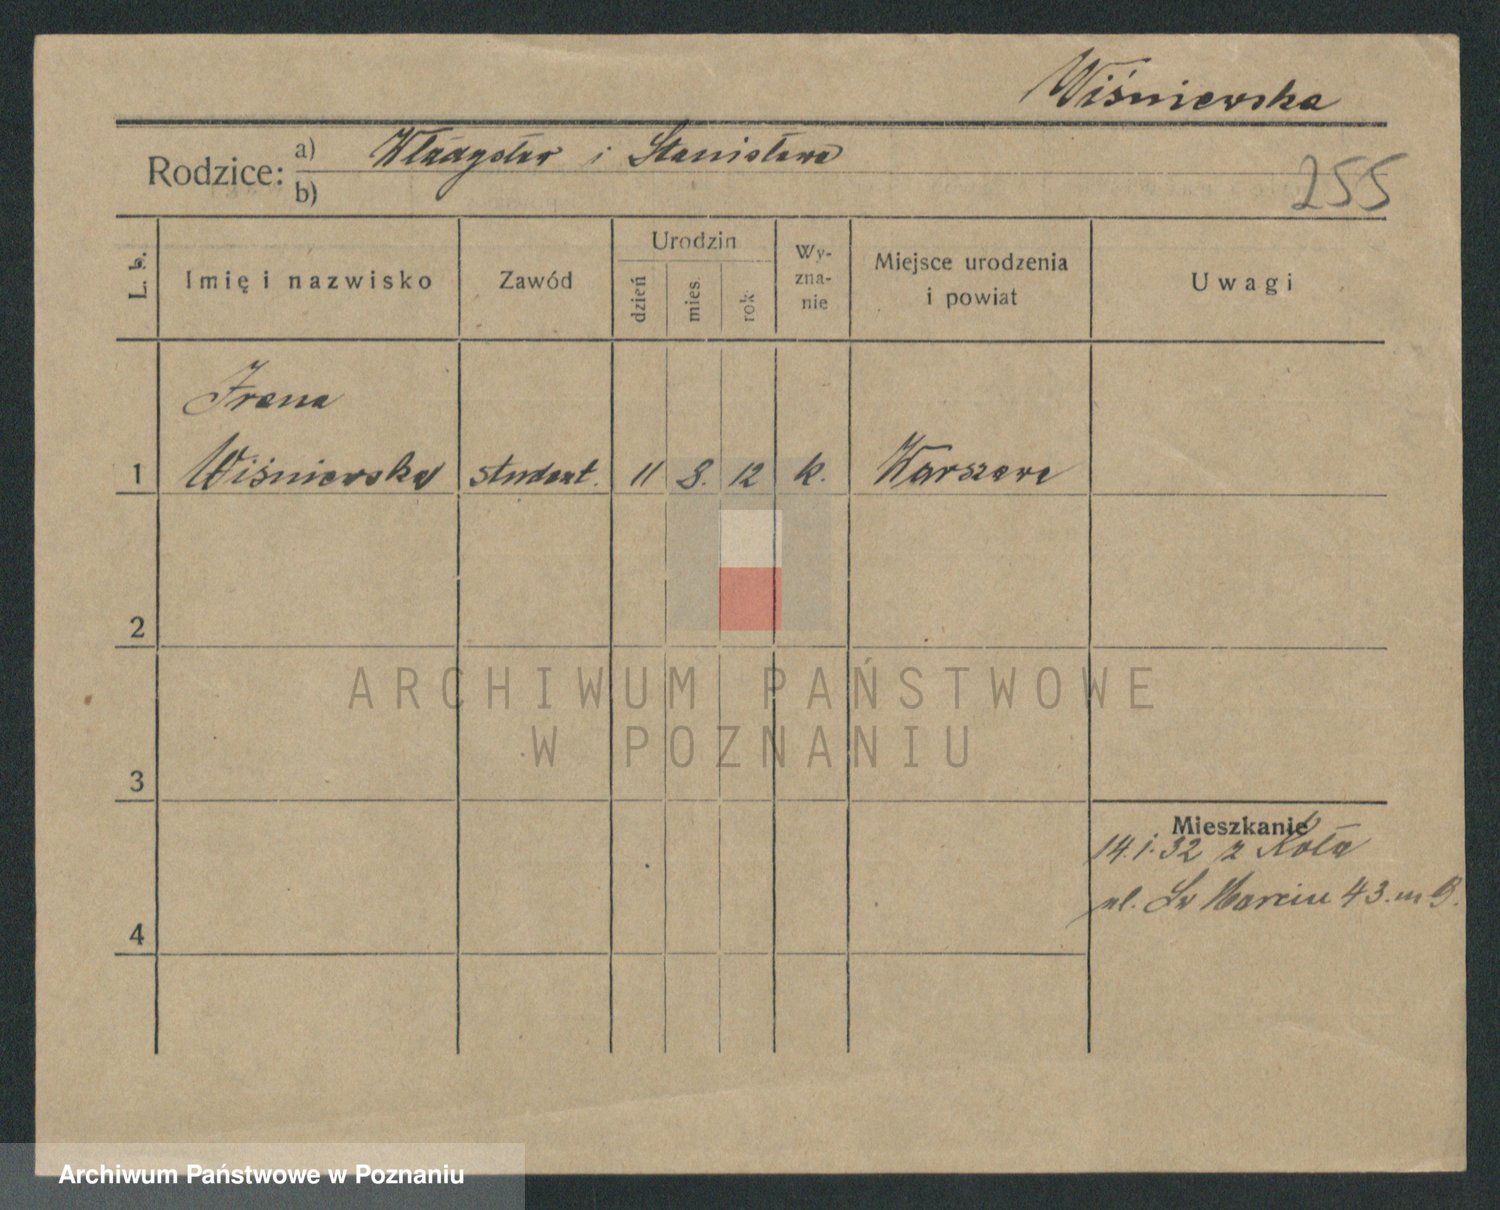 Wiśniewska
Rodzice: a) Władysław i Stanisława
b)
255
L. b.
Imię i nazwisko
Zawód
Urodzin
dzień
mies.
rok
Wy-
zna-
nie
Miejsce urodzenia
i powiat
Uwagi
Irena
1 Wiśniewska student. 11 8. 12 k. Warszawa
2
3
4
Mieszkanie
14.1.32 z Koła
ul. Św Marcin 43. m
ARCHIWUM PAŃSTWOWE
W POZNANIU
Archiwum Państwowe w Poznaniu